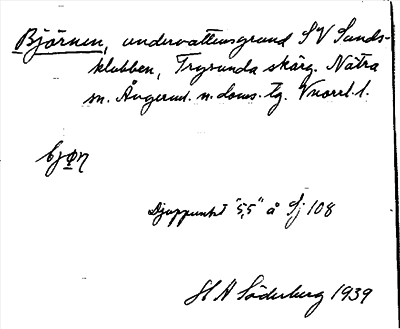 Björnen, undervattensgrund SV Sands-
klubben, Trysunda skärg. Nätra
sn. Ångerml. n. doms. tg. Vnorrl. l.
bjøη
Djuppunkt "5,5" å Sj 108
H A Söderberg 1939